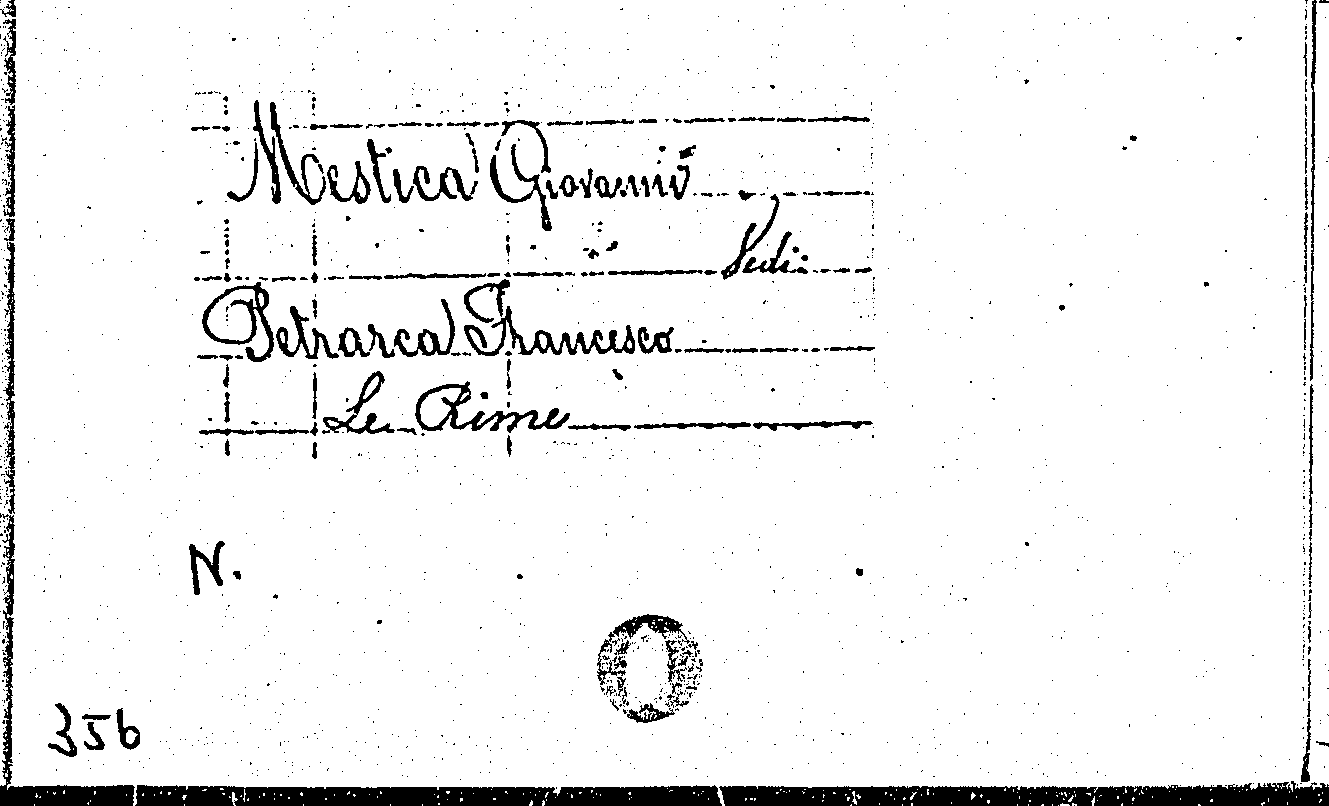 Mestica Giovanni
Vedi:
Petrarca Francesco
Le Rime
N.
356